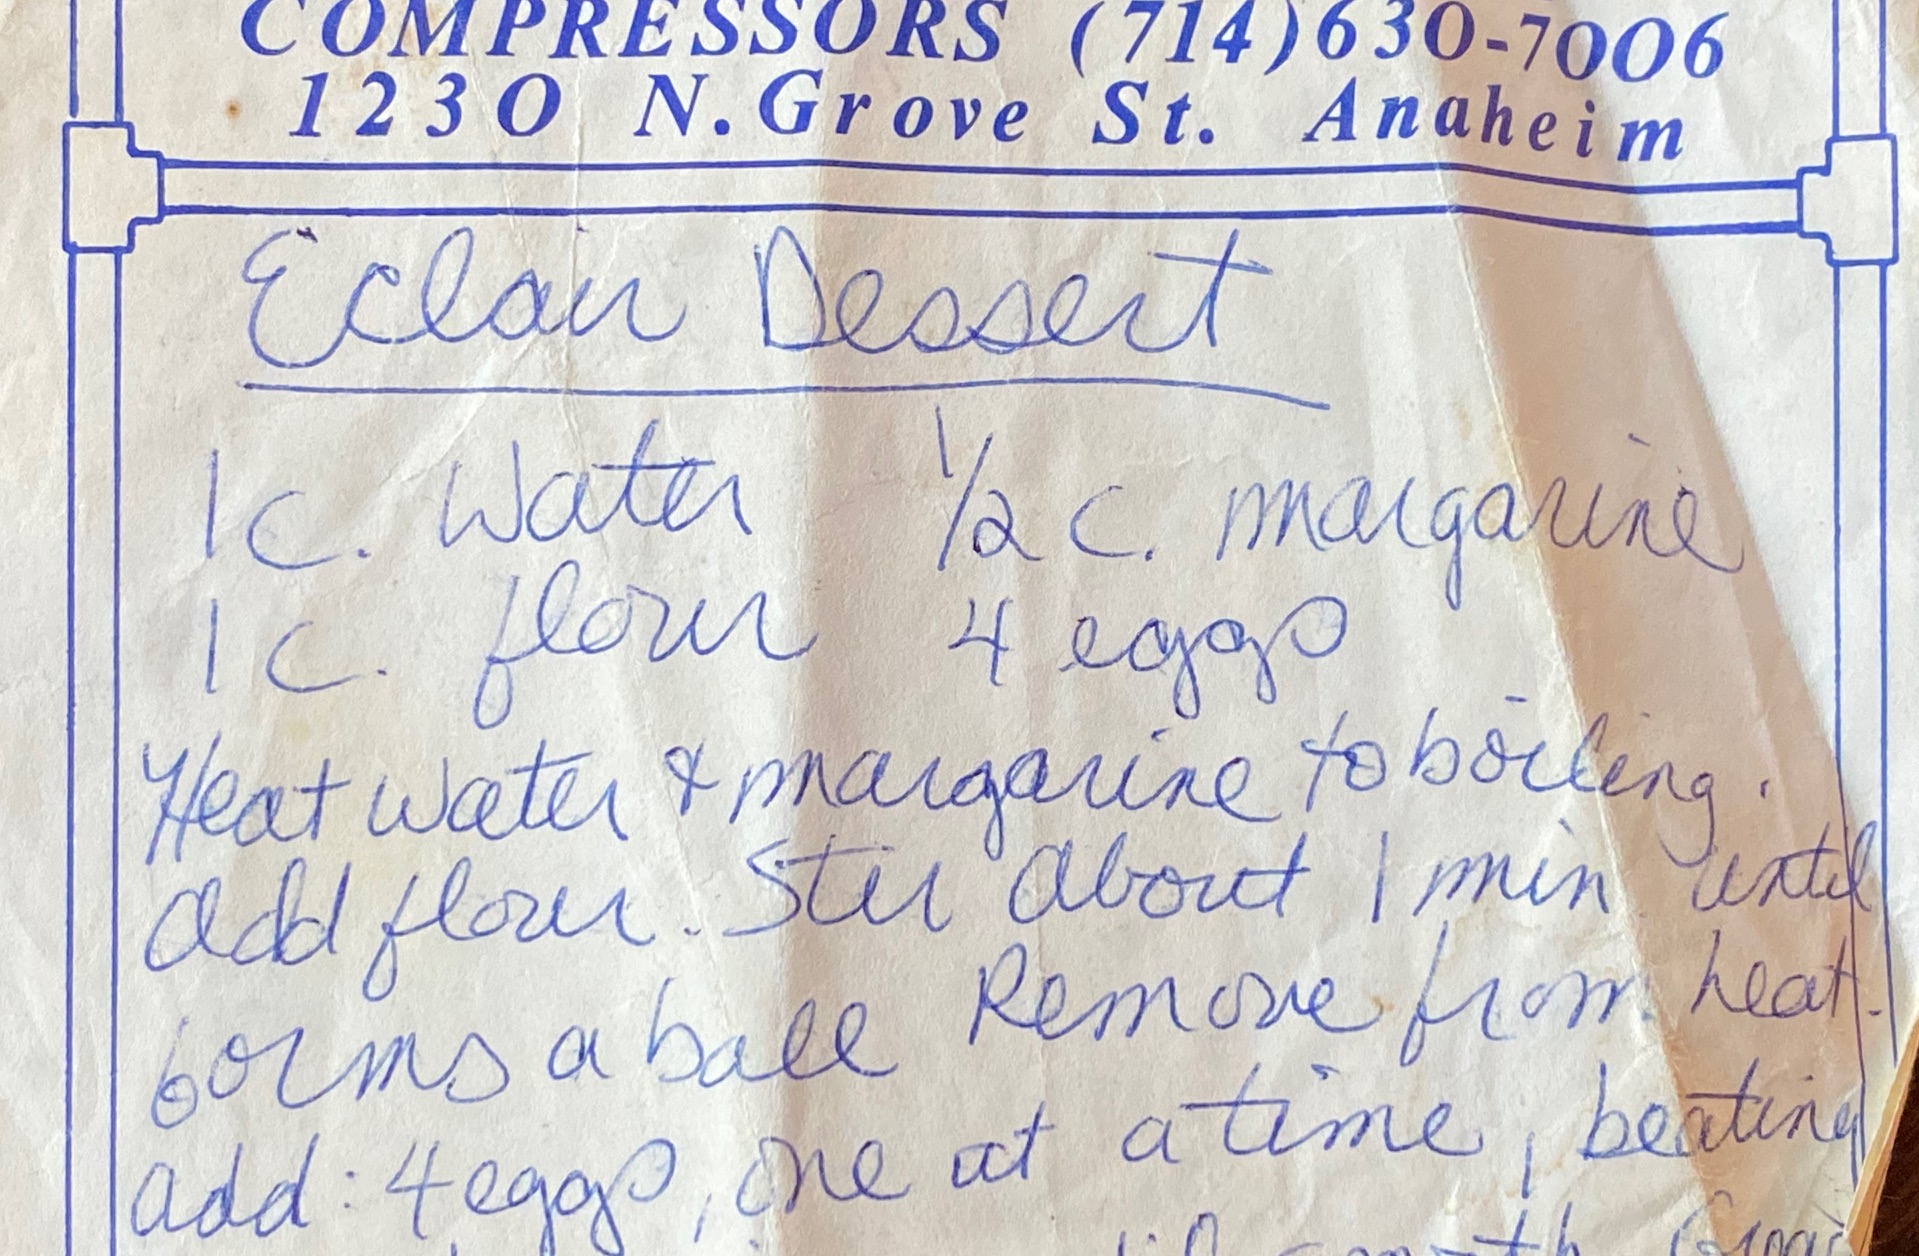 COMPRESSORS (714)630-7006
1230 N.Grove St. Anaheim
Eclair Dessert
1 c. Water 1/2 c. margarine
1 c. flour 4 eggs
Heat water & margarine to boiling.
Add flour. Stir About 1 min until
forms a ball Remove from heat.
Add: 4 eggs, one at a time, beating
smooth